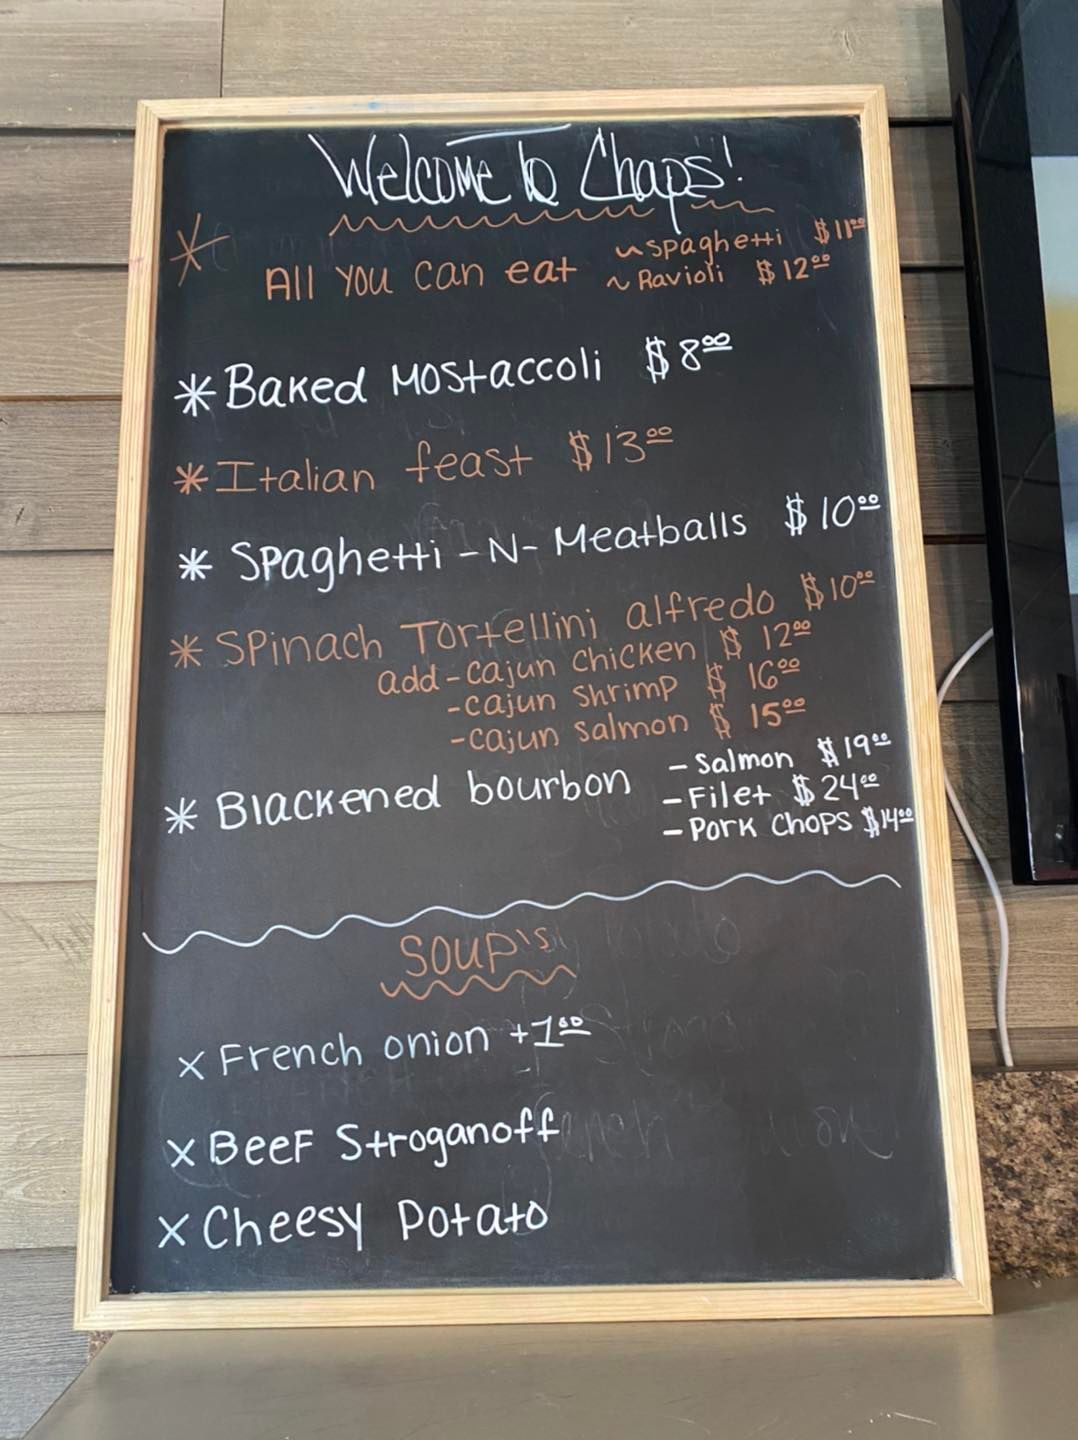 Welcome to Chaps!
* All you can eat ~spaghetti $11.00
~Ravioli $12.00
* Baked Mostaccoli $8.00
* Italian feast $13.00
* Spaghetti -N- Meatballs $10.00
* Spinach Tortellini alfredo $10.00
add - cajun chicken $ 12.00
- cajun shrimp $ 16.00
- cajun salmon $ 15.00
* Blackened bourbon - Salmon $19.00
- Filet $24.00
- Pork chops $14.00
Soup's
x French onion +1.00
x Beef Stroganoff
x Cheesy Potato